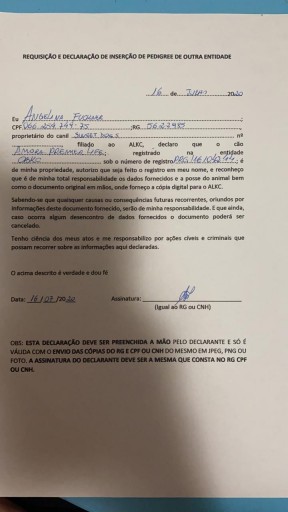 REQUISIÇÃO E DECLARAÇÃO DE INSERÇÃO DE PEDIGREE DE OUTRA ENTIDADE
16 de 2020
Eu ANGELINA
CPF ;RG 5622985
proprietário do canil SUNSET DOGS nº
filiado ao ALKC, declaro que o cão
AMORA PREMIER LIFE; registrado na entidade
sob o número de registro ; é
de minha propriedade, autorizo que seja feito o registro em meu nome, e reconheço
que é de minha total responsabilidade os dados fornecidos e a posse do animal bem
como o documento original em mãos, onde forneço a cópia digital para o ALKC.
Sabendo-se que quaisquer causas ou consequências futuras recorrentes, oriundos por
informações deste documento fornecido, serão de minha responsabilidade. E que ainda,
caso ocorra algum desencontro de dados fornecidos o documento poderá ser
cancelado.
Tenho ciência dos meus atos e me responsabilizo por ações civeis e criminais que
possam recorrer sobre as informações aqui declaradas.
O acima descrito é verdade e dou fé
Data: 16/ /2020 Assinatura:
(Igual ao RG ou CNH)
OBS: ESTA DECLARAÇÃO DEVE SER PREENCHIDA A MÃO PELO DECLARANTE E SÓ É
VÁLIDA COM O ENVIO DAS CÓPIAS DO RG E CPF OU CNH DO MESMO EM JPEG, PNG OU
FOTO. A ASSINATURA DO DECLARANTE DEVE SER A MESMA QUE CONSTA NO RG CPF
OU CNH.